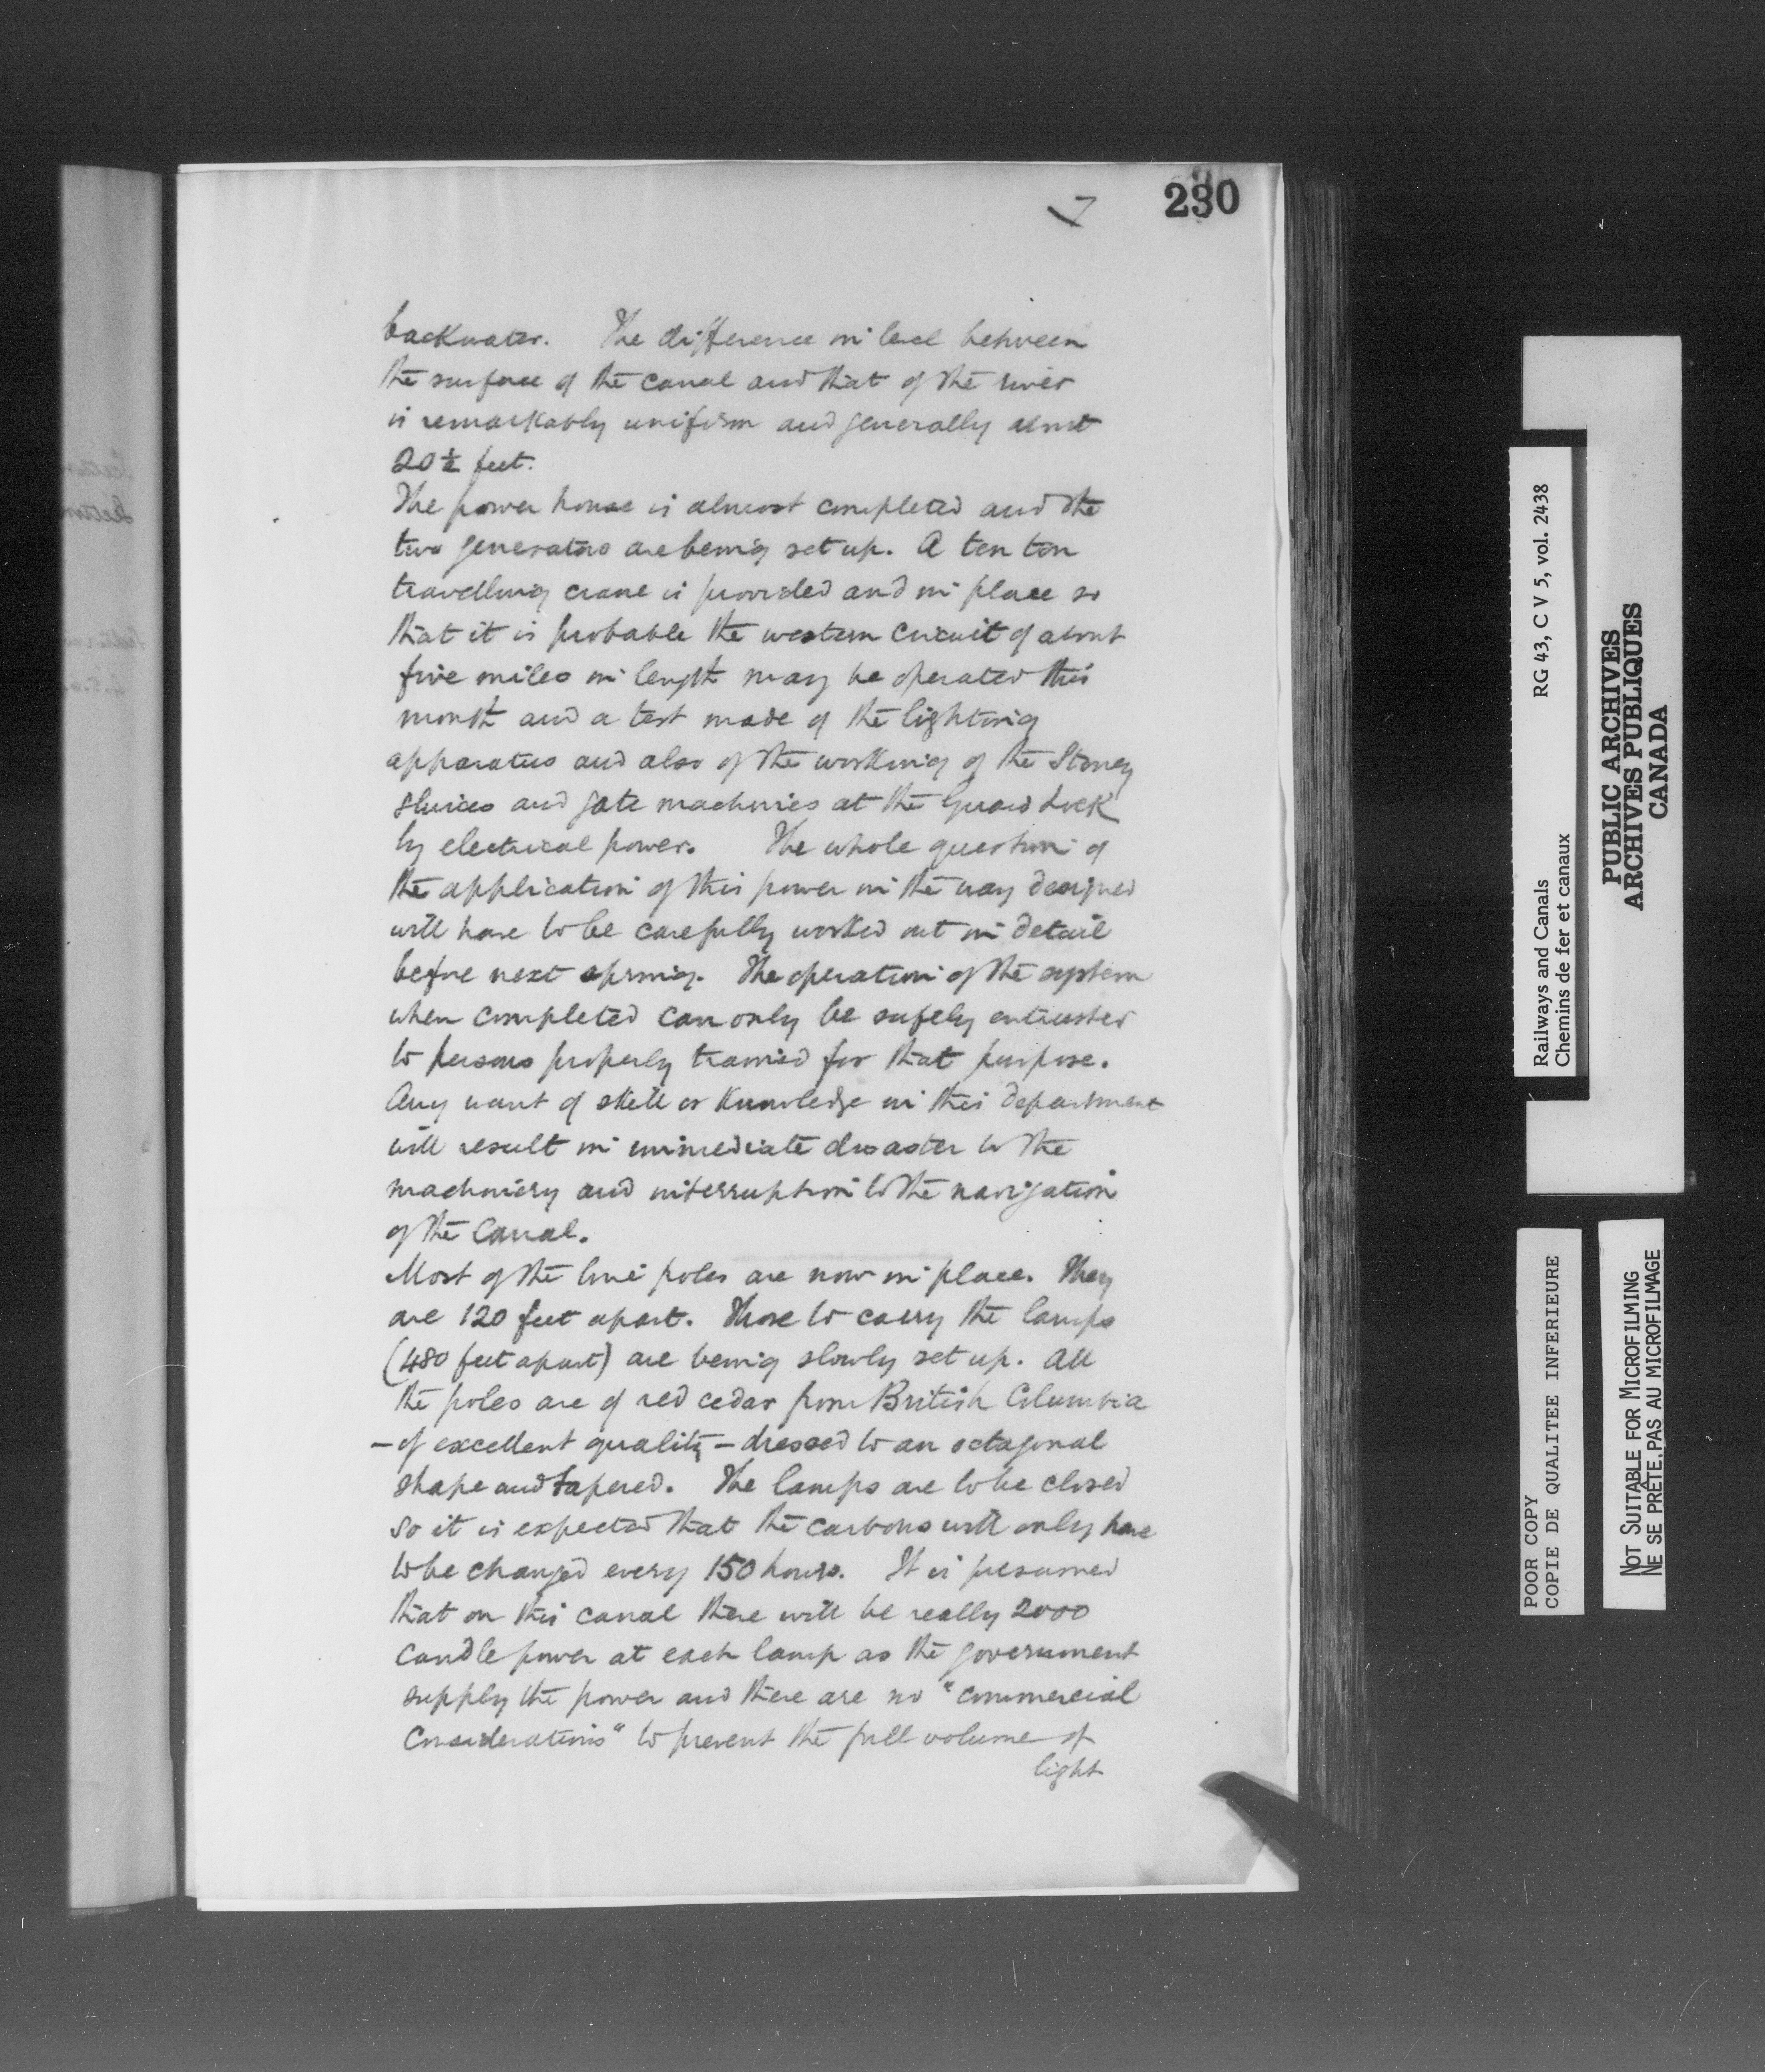 7
230
backwater. The difference in level between
the surface of the canal and that of the river
is remarkably uniform and generally about
20½ feet.
The power house is almost completed and the
two generators are being set up. A ten ton
travelling crane is provided and in place so
that it is probable the western circuit of about
five miles in length may be operated this
month and a test made of the lighting
apparatus and also of the working of the Stoney
sluices and gate machines at the Guard Lock
by electrical power. The whole question of
the application of this power in the way designed
will have to be carefully worked out in detail
before next spring. The operation of the system
when completed can only be safely entrusted
to persons properly trained for that purpose.
Any want of skill or knowledge in this department
will result in immediate disaster to the
machinery and interruption to the navigation
of the Canal.
Most of the line poles are now in place. They
are 120 feet apart. Those to carry the lamps
(480 feet apart) are being slowly set up. All
the poles are of red cedar from British Columbia
- of excellent quality - dressed to an octagonal
shape and tapered. The lamps are to be closed
so it is expected that the carbons will only have
to be changed every 150 hours. It is presumed
that on this canal there will be really 2000
candle power at each lamp as the government
supply the power and there are no "commercial
considerations" to prevent the full volume of
light
Railways and Canals RG 43, C V 5, vol. 2438
Chemins de fer et canaux
PUBLIC ARCHIVES
ARCHIVES PUBLIQUES
CANADA
POOR COPY
COPIE DE QUALITEE INFERIEURE
NOT SUITABLE FOR MICROFILMING
NE SE PRÊTE PAS AU MICROFILMAGE